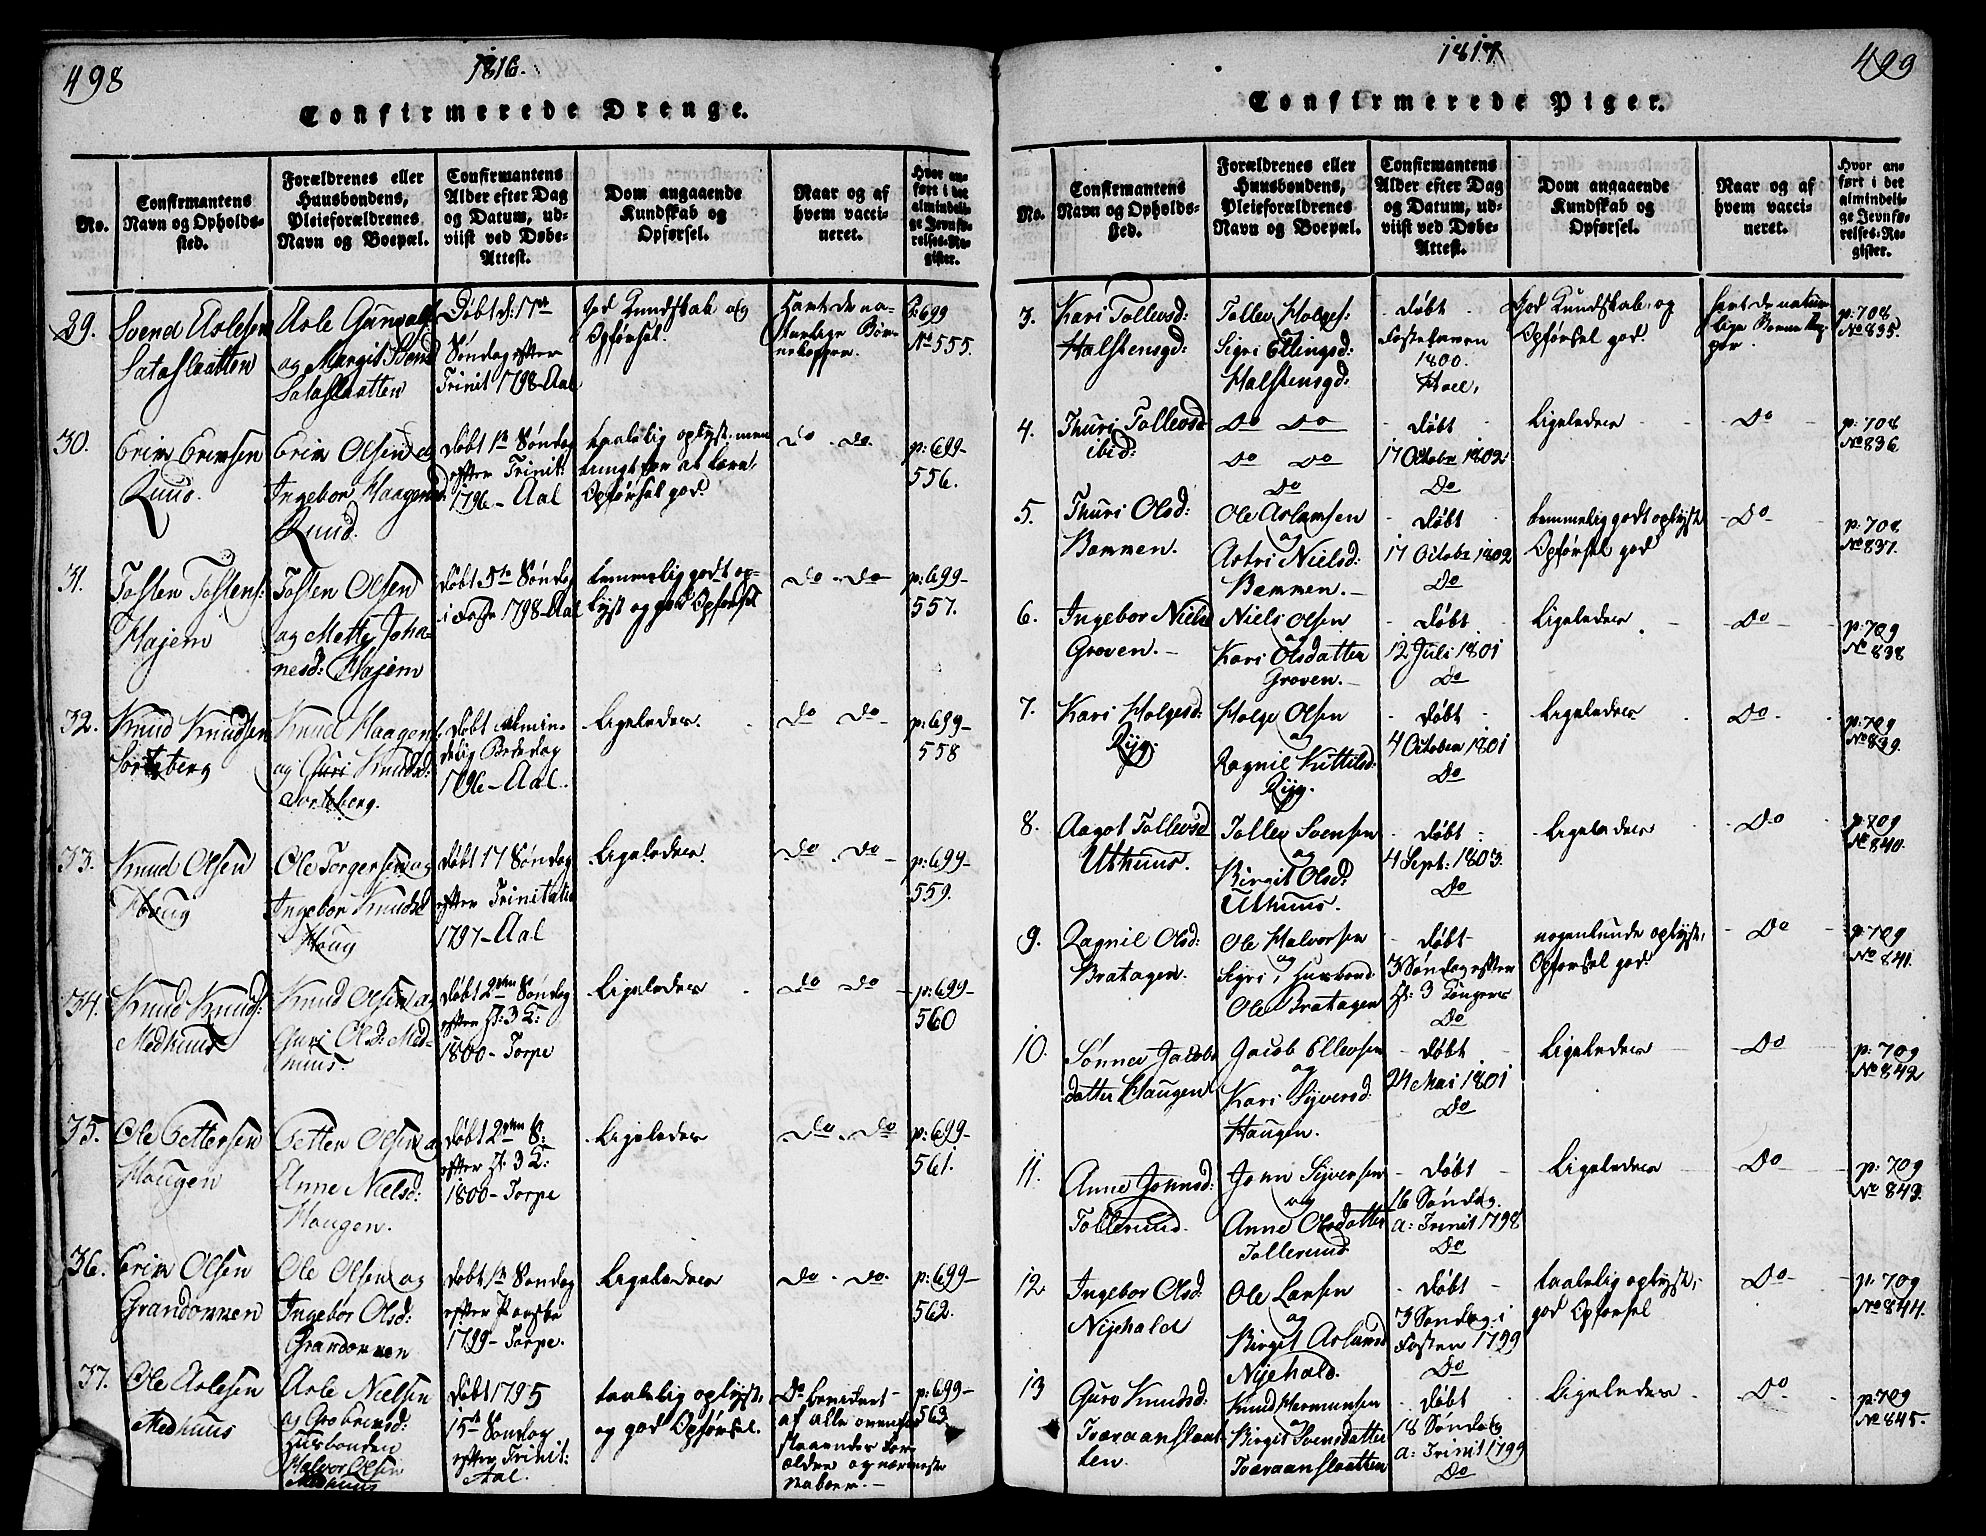 498
1816.
Confirmerede Drenge.
No.
Confirmantens Navn og Opholdssted.
Forældrenes eller Huusbondens, Pleieforældrenes Navn og Boepæl.
Confirmantens Alder efter Dag og Datum, udviist ved Døbe-Attest.
Dom angaaende Kundskab og Opførsel.
Naar og af hvem vaccineret.
Hvor anført i det almindelige Jevnførelses-Register.
29.
Svend Aslesen
Sataslaatten
Asle Gunvalds:
og Margit Svends
Sataslaatten
Døbt d: 17de
Søndag efter
Trinit 1798 - Aal
god Kundskab og
Opførsel.
Havt de na-
turlige Bør-
nekopper.
p: 699
No 555.
30.
Erik Eriksen
Ruud.
Erik Olsen og
Ingebor Haagensd:
Ruud.
Døbt 1ste Søndag
efter Trinit:
1796 - Aal
taalelig oplyst, men
tungt for at lære.
Opførsel god.
do - do
p: 699-
556.
31.
Tosten Tostens:
Hajem
Tosten Olsen
og Mette Joha-
nesd: Hajem
døbt 5te Søndag
i Faste 1798 - Aal
temmelig godt op-
lyst og god Opførsel
do - do
p: 699-
557.
32.
Knud Knudsen
Sorteberg
Knud Haagens:
og Guri Knudsd:
Sorteberg.
døbt Almin-
delig Bededag
1796 - Aal.
Ligeledes.
do do
p: 699-
558
33.
Knud Olsen
Houg
Ole Torgersen og
Ingebor Knudsd
Houg
døbt 17 Søndag
efter Trinitatis
1797 - Aal
Ligeledes.
do - do
p: 699-
559.
34.
Knud Knuds:
Medhuus
Knud Olsen og
Guri Olsd: Med-
huus.
døbt 2den Søndag
efter H: 3 K:
1800 - Torpe
Ligeledes
do do
p: 699-
560
35.
Ole Pettersen
Haugen
Petter Olsen og
Anne Nielsd:
Haugen.
døbt 2den S:
efter H: 3 K:
1800 - Torpe
Ligeledes
do - do
p: 699-
561.
36.
Erik Olsen
Grandommen
Ole Olsen og
Ingebor Olsd:
Grandommen
døbt 1ste Søndag
efter Paaske
1799 - Torpe.
Ligeledes
do - do.
p: 699-
562.
37.
Ole Aslesen
Medhuus
Asle Nielsen
og Gro Eriksd:
Husbonden
Halvor Olsen
Medhuus
døbt 1795
15de Søndag
efter Trinit:
Aal.
taalelig oplyst
og god Opførsel.
Do bevidnet
af alle ovenfor
staaendes For-
ældre og nærmeste
Naboer. -
p: 699-
563.
1817
499
Confirmerede Piger.
No.
Confirmantens Navn og Opholdssted.
Forældrenes eller Huusbondens, Pleieforældrenes Navn og Boepæl.
Confirmantens Alder efter Dag og Datum, udviist ved Døbe-Attest.
Dom angaaende Kundskab og Opførsel.
Naar og af hvem vaccineret.
Hvor anført i det almindelige Jevnførelses-Register.
3.
Kari Tollevsd:
Halstensgd:
Tollev Holges:
Sigri Ellingsd:
Halstensgd:
døbt
1800.
Hoel,
God Kundskab, og
Opførsel god.
havt de natur-
lige Børnekop-
per.
p: 708
No 835.
4.
Thuri Tollevsd
ibid:
Do Do
Do Do
Do
døbt
17 Octobr 1802
Do
Ligeledes
Do
p: 708
No 836
5.
Thuri Olsd:
Bommen.
Ole Aslansen
og
Astri Nielsd:
Bommen. -
døbt
17 Octobr 1802
Do
temmelig godt oplyst
Opførsel god
Do
p: 708
No 837.
6.
Ingebor Nielsd
Groven. -
Niels Olsen
og
Kari Olsdatter
Groven. -
døbt
12 Juli 1801
Do
Ligeledes
Do
p: 709
No 838
7.
Kari Holgesd:
Ryg.
Holge Olsen
og
Ragnil Kittilsd:
Ryg.
døbt
4 October 1801
Do
Ligeledes
Do
p: 709
No 839.
8.
Aagot Tollevsd
Uthuus.
Tollev Svensen
og
Birgit Olsd:
Uthuus.
døbt
4 Sept: 1803.
Do
Ligeledes
Do
p: 709
No 840.
9.
Ragnil Olsd:
Bratagen.
Ole Halvorsen
og
Sigri, Husbond
Ole Bratagen
døbt
3 Søndag efter
H: 3 Konger
Do
nogenlunde oplyst,
Opførsel god
Do
p: 709
No 841.
10.
Sønnev Jacobs
datter Haugen
Jacob Ellevsen
og
Kari Syversd:
Haugen.
døbt
24 Mai 1801
Do
Ligeledes
Do
p: 709
No 842
11.
Anne Jonnsd:
Tollerund.
Jonn Syversen
og
Anne Olsdatter
Tollerund
døbt
16 Søndag
a: Trinit 1798
Do
Ligeledes
Do
p: 709
No 843.
12
Ingebor Olsd:
Nyehald
Ole Larsen
og
Birgit Aslansd
Nyehald.
døbt
3 Søndag i
Fasten 1799
Do
taalelig oplyst,
god Opførsel
Do
p: 709
No 844.
13
Guro Knudsd:
Tværaanslaat-
ten.
Knud Hermansen
og
Birgit Svensdatter
Tværaanslaatten
døbt
18 Søndag
a: Trinit 1799
Do
Ligeledes
Do
p: 709
No 845.